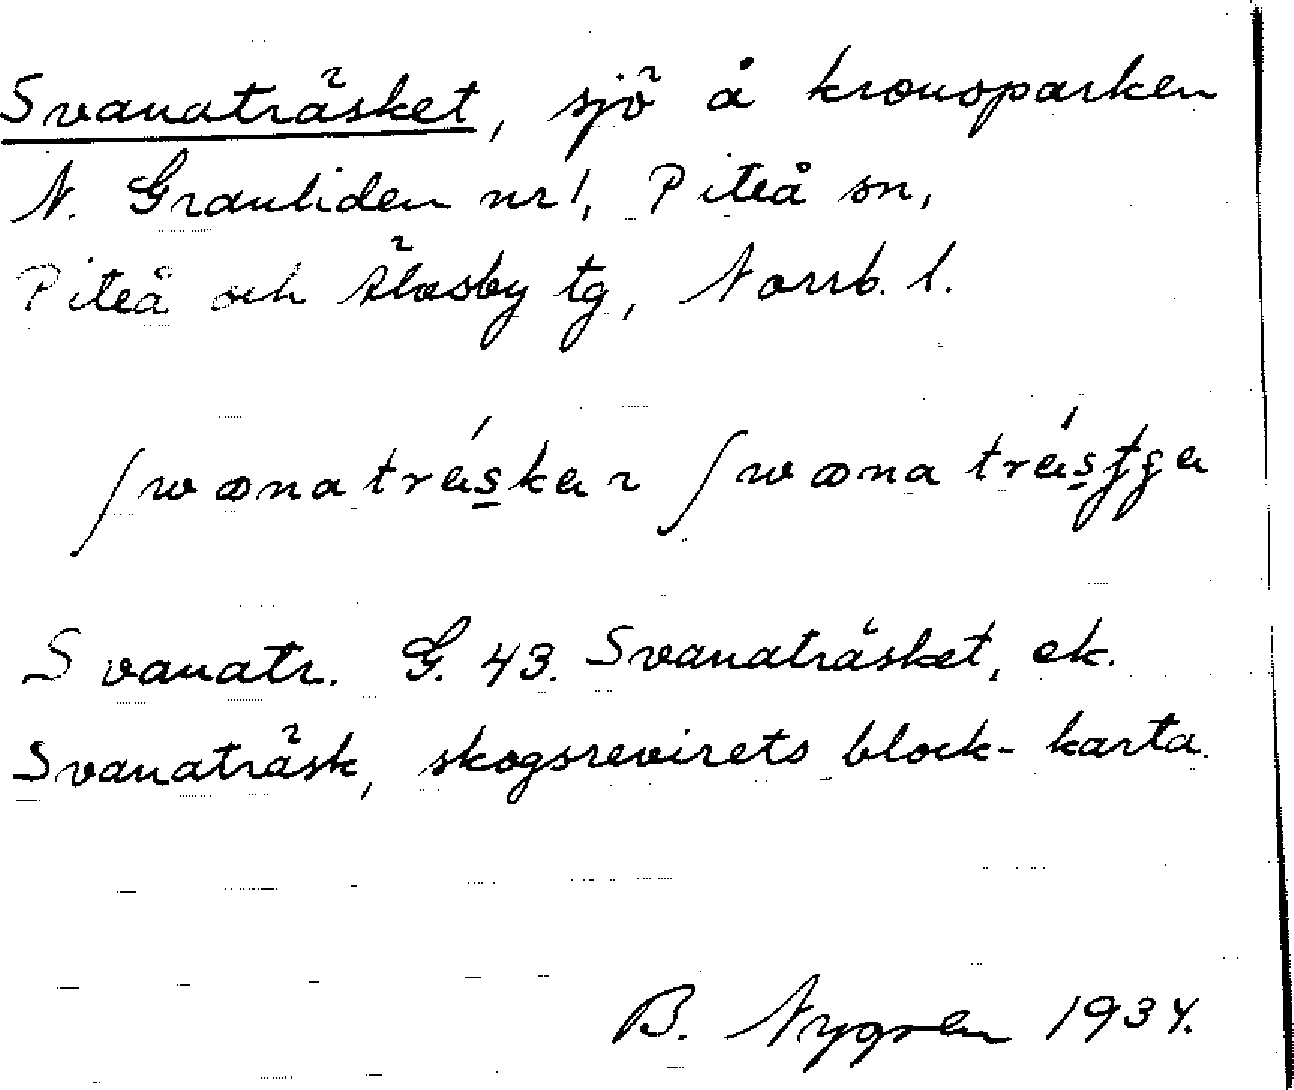 Svanaträsket, sjö å kronoparken
N. Granliden nr 1, Piteå sn,
Piteå och Älvsby tg, Norrb. l.
ʃwɷnatrǽskɐr ʃwɷna trǽsʈʂɐ
Svanatr. G. 43. Svanaträsket, ek.
Svanaträsk, skogsrevirets block-karta.
B. Nygren 1934.